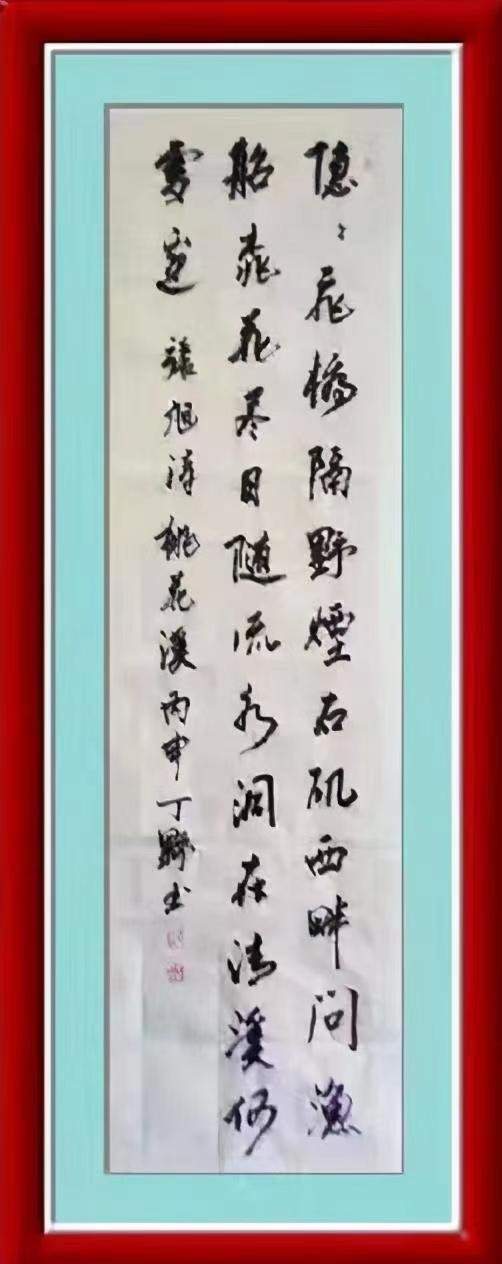 隐〻飛橋隔野煙石矶西畔问渔
船桃花尽日随流水洞在清溪何
處邊 張旭诗桃花溪丙申丁野书